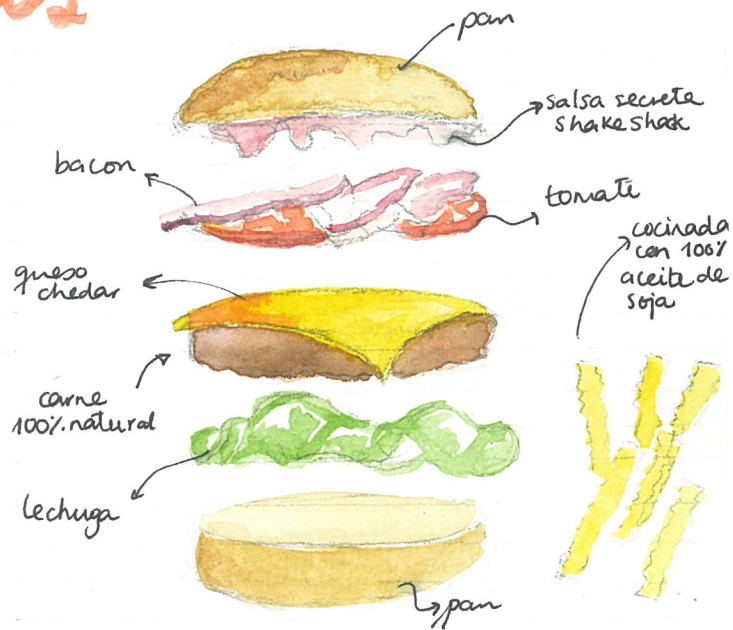 pan
salsa secreta
shake shack
bacon
tomate
cocinada
con 100%
aceite de
soja
queso
chedar
carne
100% natural
lechuga
pan